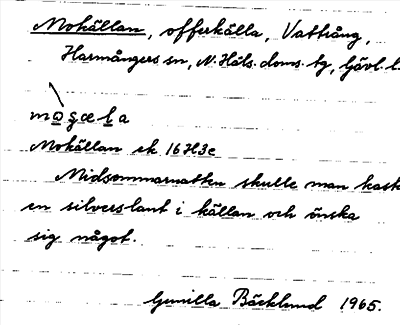 Mokällan, offerkälla, Vattrång,
Harmångers sn, N. Häls. doms. tg, Gävl. l.
mo̲g̲æl̲a
Mokällan ek 16H3e
Midsommarnatten skulle man kast
en silverslant i källan och önska
sig något.
Gunilla Bäcklund 1965.